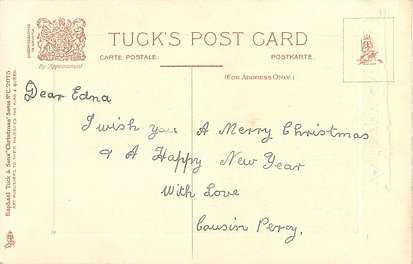 TUCK'S POST CARD
CARTE POSTALE.
POSTKARTE.
By Appointment
(FOR ADDRESS ONLY.)
Dear Edna
I wish you A Merry Christmas
& A Happy New Year
With Love
Cousin Percy.
Raphael Tuck & Sons' "Christmas" Series Nº C. 2005.
ART PUBLISHERS TO THEIR MAJESTIES THE KING & QUEEN.